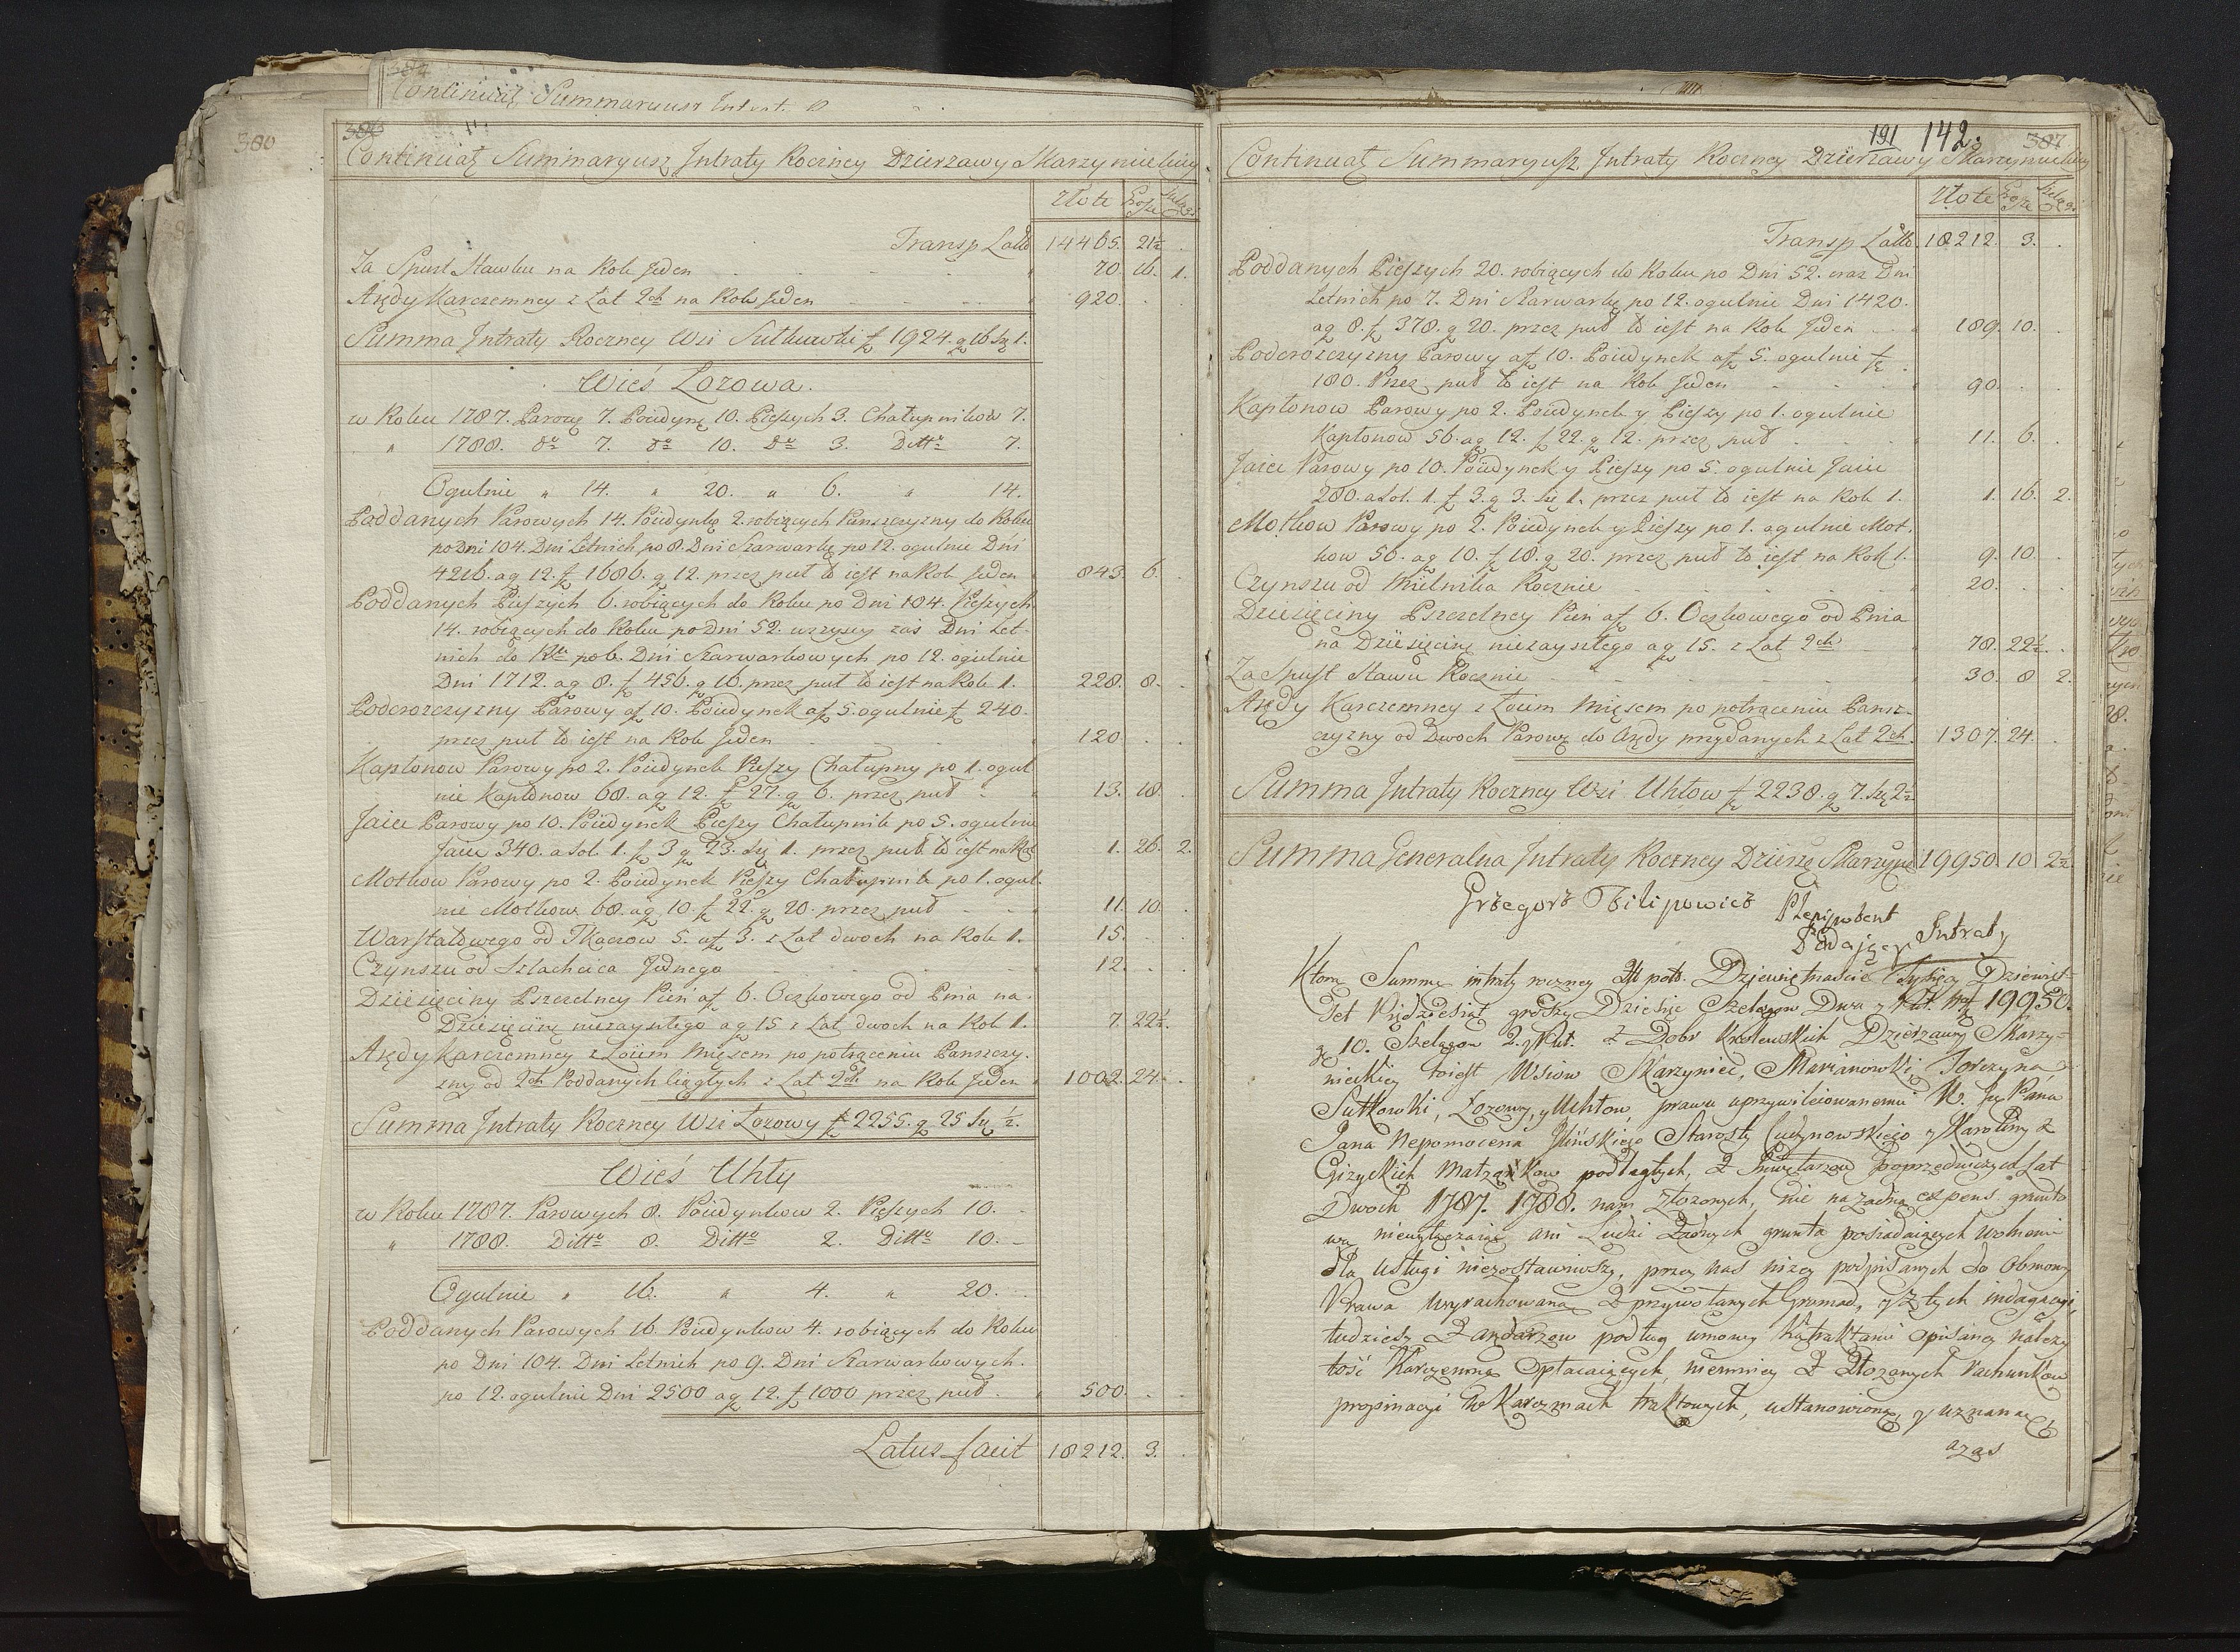 380
384
Continuat. Summaryusz Intrat. R
386
Continuat. Summaryusz Intraty Roczney Dzierzawy Skarzynieckiey
Złote Grosze Szelągi
Transp Latto 14465. 21½ .
Za Spust Stawku na Rok Jeden 70. 16. 1.
Arędy Karczemney z Lat 2ch na Rok Jeden 920. . .
Summa Intraty Roczney Wsi Sutkowki f 1924. g 16 Szę 1.
Wieś Lozowa.
w Roku 1787. Parowę 7. Poiedynę 10. Pieszych 3. Chałupnikow 7.
" 1788. do 7. do 10. do 3. Ditto 7.
Ogulnie " 14. " 20. " 6. " 14.
Poddanych Parowych 14. Poiedynkę 2. robiących Panszczyzny do Roku
po Dni 104. Dni Letnich po 8. Dni Szarwarkę po 12. ogulnie Dni
4216. ag 12. f 1686. g 12. przez puł to iest na Rok Jeden 843. 6. .
Poddanych Pieszych 6. robiących do Roku po Dni 104. Pieszych
14. robiących do Roku po Dni 52. wszyscy zaś Dni Let-
nich do Rku po 6. Dni Szarwarkowych po 12. ogulnie
Dni 1712. ag 8. f 456. g 16. przez puł to iest na Rok 1. 228. 8. .
Podorozczyzny Parowy af 10. Poiedynek af 5. ogulnie f 240.
przez puł to iest na Rok Jeden 120. . .
Kapłonow Parowy po 2. Poiedynek Pieszy Chałupny po 1. ogul
nie Kapłonow 68. ag 12. f 27. g 6. przez puł 13. 18 .
Jaiec Parowy po 10. Poiedynek Pieszy Chałupnik po 5. ogulnie
Jaiec 340. a Sol. 1. f 3 g 23. Szę 1. przez puł to iest na Rok 1. 26. 2.
Motkow Parowy po 2. Poiedynek Pieszy Chałupnik po 1. ogul.
nie Motkow 68. ag 10. f 22. g 20. przez puł 11. 10. .
Warstatowego od Tkaczow 5. af 3. z Lat dwoch na Rok 1. 15. . .
Czynszu od Szlachcica Jednego 12. . .
Dziesięciny Pszczelney Pień af 6. Oczkowego od Pnia na
Dziesięcinę niezaysłego ag 15 z Lat dwoch na Rok 1. 7. 22½.
Arędy Karczemney z Łoiem Mięsem po potrąceniu Panszczy.
zny od 2ch Poddanych ciągłych z Lat 2ch na Rok Jeden 1002. 24. .
Summa Intraty Roczney Wsi Lozowy f 2255. g 25 Szę ½.
Wieś Uhły
w Roku 1787. Parowych 8. Poiedynkow 2. Pieszych 10.
" 1788. Ditto 8. Ditto 2. Ditto 10.
Ogulnie " 16. " 4. " 20.
Poddanych Parowych 16. Poiedynkow 4. robiących do Roku
po Dni 104. Dni Letnich po 9. Dni Szarwarkowych.
po 12. ogulnie Dni 2500 ag 12. f 1000 przez puł. 500. . .
Latus facit 18212. 3. .
191 142 387
Continuat. Summaryusz. Intraty Roczney Dzierzawy Skarzynieckiey
Złote Grosze Szelągi
Transp Latto. 18212. 3. .
Poddanych Pieszych 20. robiących do Roku po Dni 52. oraz Dni
Letnich po 7. Dni Szarwarkę po 12. ogulnie Dni 1420.
ag 8. f 378. g 20. przez puł to iest na Rok Jeden 189. 10. .
Podorozczyzny Parowy af 10. Poiedynek af 5. ogulnie f
180. Przez puł to iest na Rok Jeden 90. . .
Kapłonow Parowy po 2. Poiedynek y Pieszy po 1. ogulnie
Kapłonow 56. ag 12. f 22. g 12. przez puł 11. 6. .
Jaiec Parowy po 10. Poiedynek y Pieszy po 5. ogulnie Jaiec
280. a Sol. 1. f 3. g 3. Szę 1. przez puł to iest na Rok 1. 1. 16. 2.
Motkow Parowy po 2. Poiedynek y Pieszy po 1. ogulnie Mot.
kow 56. ag 10. f 18. g 20. przez puł to iest na Rok 1. 9. 10. .
Czynszu od Mielnika Rocznie 20. . .
Dziesięciny Pszczelney Pień af 6. Oczkowego od Pnia
na Dziesięcinę niezaysłego ag 15. z Lat 2ch 78. 22½. .
Za Spust Stawu Rocznie 30. 8 2.
Arędy Karczemney z Łoiem Mięsem po potrąceniu Pansz-
czyzny od Dwoch Parowę do Arędy przydanych z Lat 2ch. 1307. 24. .
Summa Intraty Roczney Wsi Uhłow f 2238. g 7. Szę 2½
Summa Generalna Intraty Roczney Dzierżę Skarzynie 19950. 10 2½.
Grzegorz Filipowicz Plenipotent
Podaiący Intraty
Ktorą Summę intraty roczney Zł pols. Dziewiętnaście Tysięcy Dziewięć-
set Pięćdziesiąt groszy Dziesięć Szelągow Dwa y Puł. f 19950.
g 10. Szelągow 2. y Puł. z Dobr Krolewskich Dzierzawy Skarzy-
nieckiey toiest Wsiow Skarzyniec, Maryanowki, Torczyna,
Sutkowki, Lozowy, y Uhłow prawu uprzywileiowanemu W. Ję Pana
Jana Nepomucena Ilińskiego Starosty Cudynowskiego y Karoliny z
Giżyckich Małżąkow podległych, z Inwętarzow poprzedniczych Lat
Dwoch 1787. 1788. nam złożonych, nic na żadną expens grunto
wą niewytrącaiąc ani Ludzi Żadnych grunta posiadaiących wolnemi
dla usługi niezostawiwszy, przez nas niżey podpisanych do Obmowy
Prawa wyrachowaną z przywołanych Gromad, y z tych indagacyi,
tudziesz z arędarzow podług umowy Kątraktami opisaney należy
tość Karczemną opłacaiących, niemniey z Złożonych rachunkow
propinacyi w Karczmach traktowych, ustanowioną y uznaną
azas